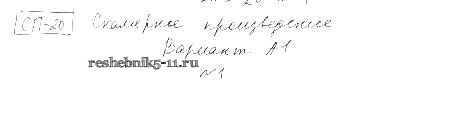 СП-20 Скалярное произведение
Вариант А1
reshebnik5-11.ru
№1